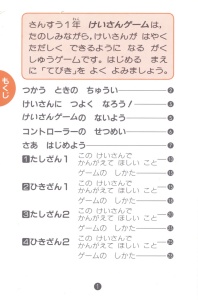 さんすう1年 けいさんゲームは,
たのしみながら,けいさんが はやく
ただしく できるように なる がく
しゅうゲームです。はじめる まえ
に「てびき」を よく よみましょう。
もくじ
つかう ときの ちゅうい 2
けいさんに つよく なろう!
けいさんゲームの ないよう
コントローラーの せつめい 6
さあ はじめよう 7
1 たしざん1 この けいさんで
かんがえて ほしい こと
ゲームの しかた
2 ひきざん1 この けいさんで
かんがえて ほしい こと
ゲームの しかた
3 たしざん2 この けいさんで
かんがえて ほしい こと
ゲームの しかた
4 ひきざん2 この けいさんで
かんがえて ほしい こと
ゲームの しかた
1